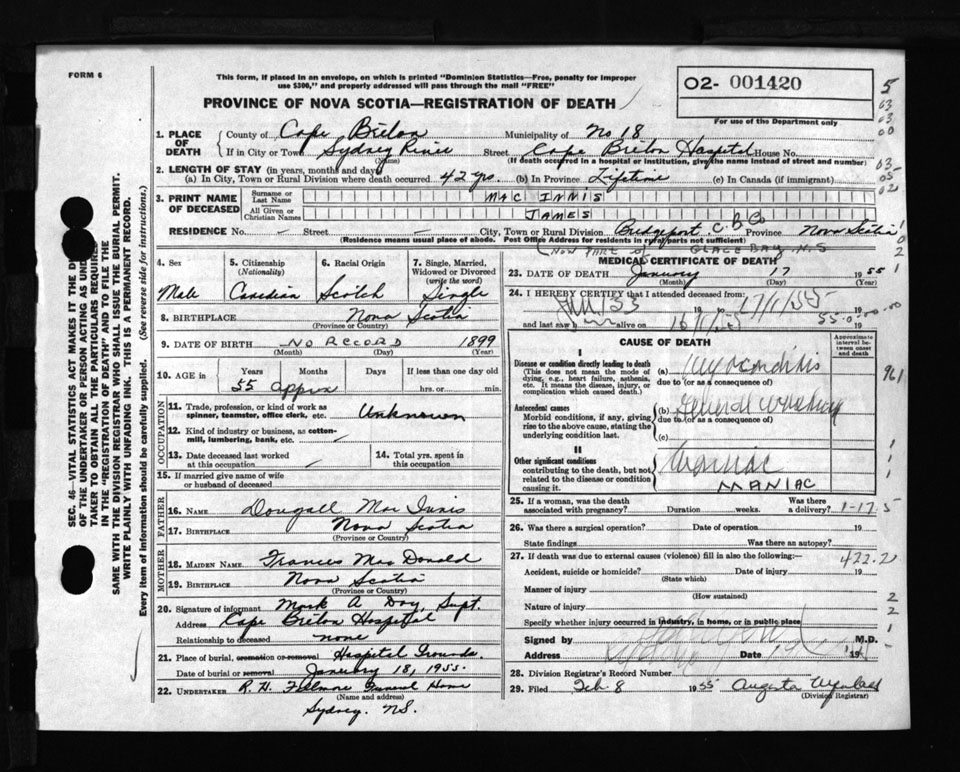 FORM 6
This form, if placed in an envelope, on which is printed "Dominion Statistics—Free, penalty for improper
use $300," and properly addressed will pass through the mail "FREE"
PROVINCE OF NOVA SCOTIA—REGISTRATION OF DEATH
O2- 001420
For use of the Department only
5
03
03
00
03-
05
02
1. PLACE OF DEATH
County of Cape Breton Municipality of No 18
If in City or Town Sydney River Street Cape Breton Hospital House No.
(Name) (If death occurred in a hospital or institution, give the name instead of street and number)
2. LENGTH OF STAY (in years, months and days)
(a) In City, Town or Rural Division where death occurred 42 yrs. (b) In Province Lifetime (c) In Canada (if immigrant)
3. PRINT NAME OF DECEASED
Surname or Last Name MAC INNIS
All Given or Christian Names JAMES
RESIDENCE No. - Street - City, Town or Rural Division Bridgeport C.B. Co Province Nova Scotia
(Residence means usual place of abode. Post Office Address for residents in rural parts not sufficient)
(NOW PART OF GLACE BAY N.S
4. Sex
Male
5. Citizenship (Nationality)
Canadian
6. Racial Origin
Scotch
7. Single, Married, Widowed or Divorced (write the word)
Single
8. BIRTHPLACE Nova Scotia
(Province or Country)
9. DATE OF BIRTH NO RECORD 1899
(Month) (Day) (Year)
10. AGE in Years Months Days If less than one day old
55 approx hrs. or min.
OCCUPATION
11. Trade, profession, or kind of work as spinner, teamster, office clerk, etc. Unknown
12. Kind of industry or business, as cotton-mill, lumbering, bank, etc.
13. Date deceased last worked at this occupation
14. Total yrs. spent in this occupation
15. If married give name of wife or husband of deceased
FATHER
16. Name Dougall Mac Innis
17. Birthplace Nova Scotia
(Province or Country)
MOTHER
18. Maiden Name Frances Mac Donald
19. Birthplace Nova Scotia
(Province or Country)
20. Signature of informant Mark A Day, Supt.
Address Cape Breton Hospital
Relationship to deceased none
21. Place of burial, cremation or removal Hospital Grounds.
Date of burial or removal January 18, 1955.
22. UNDERTAKER R. H. Fillmore Funeral Home
(Name and address)
Sydney. NS.
MEDICAL CERTIFICATE OF DEATH
23. DATE OF DEATH January 17 1955
(Month) (Day) (Year)
24. I HEREBY CERTIFY that I attended deceased from:
19 to 17/1/55
and last saw alive on 19
55-0
CAUSE OF DEATH
Approximate interval between onset and death
I
Disease or condition directly leading to death
(This does not mean the mode of dying, e.g., heart failure, asthenia, etc. It means the disease, injury, or complication which caused death.)
(a) Myocarditis
due to (or as a consequence of)
961
Antecedent causes
Morbid conditions, if any, giving rise to the above cause, stating the underlying condition last.
(b) General
due to (or as a consequence of)
(c)
II
Other significant conditions
contributing to the death, but not related to the disease or condition causing it.
Maniac
MANIAC
25. If a woman, was the death associated with pregnancy? Duration weeks. Was there a delivery?
1-17 5
26. Was there a surgical operation? Date of operation 19
State findings Was there an autopsy?
27. If death was due to external causes (violence) fill in also the following:—
422.2
Accident, suicide or homicide? Date of injury 19
(State which)
Manner of injury
(How sustained)
Nature of injury
Specify whether injury occurred in industry, in home, or in public place
Signed by M.D.
Address Date 19
28. Division Registrar's Record Number
29. Filed Feb. 8 1955 Augusta
(Division Registrar)
SEC. 46 VITAL STATISTICS ACT MAKES IT THE
OF THE UNDERTAKER OR PERSON ACTING AS
TAKER TO OBTAIN ALL THE PARTICULARS REQUIRED
IN THE "REGISTRATION OF DEATH" AND TO FILE THE
SAME WITH THE DIVISION REGISTRAR WHO SHALL ISSUE THE BURIAL PERMIT.
WRITE PLAINLY WITH UNFADING INK. THIS IS A PERMANENT RECORD.
Every item of information should be carefully supplied. (See reverse side for instructions.)